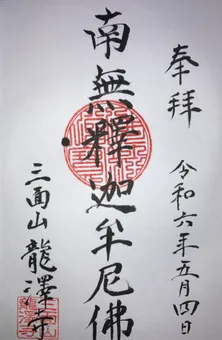 奉拝
令和六年五月四日
南無釋迦牟尼佛
三面山龍澤寺